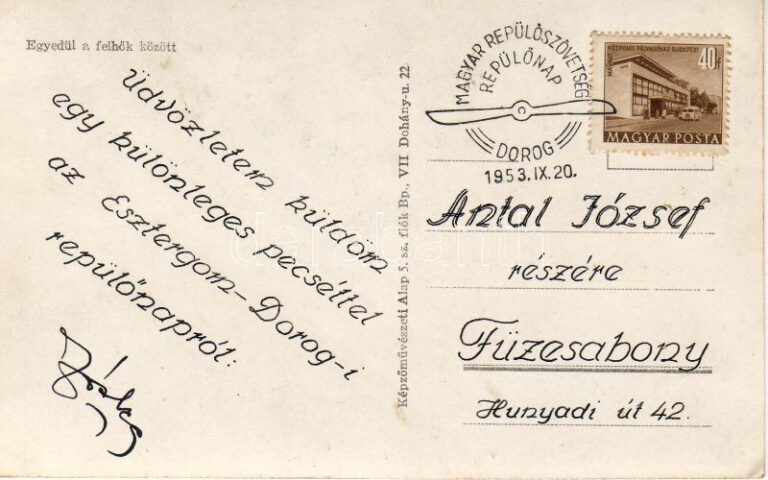 Egyedül a felhők között
Üdvözletem küldöm
egy különleges pecséttel
az Esztergom-Dorog-i
repülőnapról:
Képzőművészeti Alap 5. sz. fiók Bp., VII Dohány-u. 22
MAGYAR REPÜLŐSZÖVETSÉG
REPÜLŐNAP
DOROG
1953.IX.20.
KÖZPONTI PÁLYAUDVAR BUDAPEST
40f
MAGYAR POSTA
Antal József
részére
Füzesabony
Hunyadi út 42.
darabanth